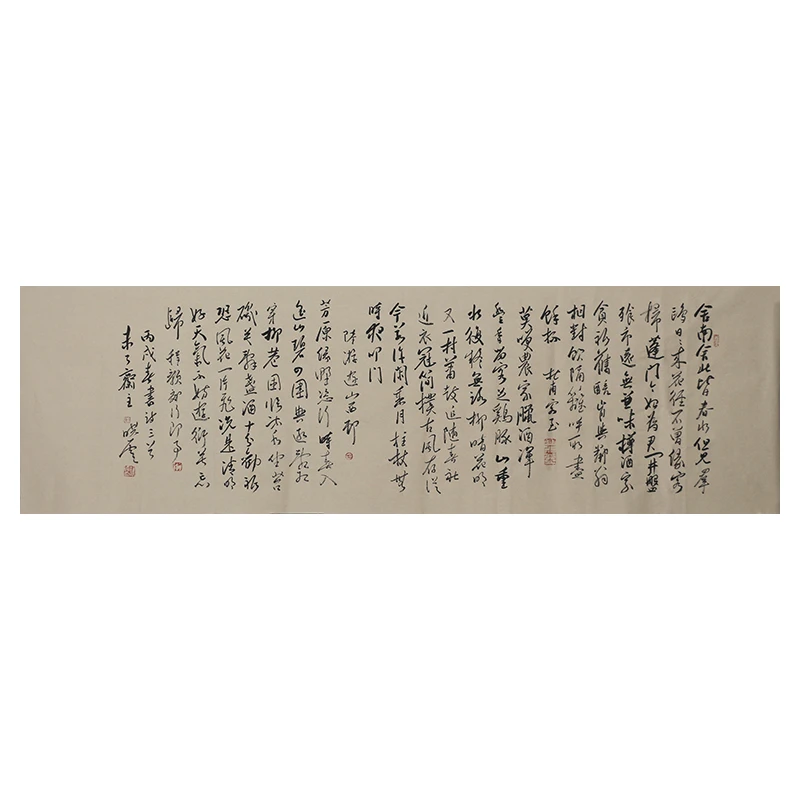 舍南舍北皆春水但見羣
鷗日日来花徑不曾緣客
掃蓬門今始為君開盤
飱市遠無兼味樽酒家
貧祇舊醅肯與鄰翁
相對飲隔籬呼取盡
餘杯 杜甫客至
莫笑農家臘酒渾
豐年留客足鷄豚山重
水復疑無路柳暗花明
又一村簫鼓追隨春社
近衣冠簡樸古風存從
今若許閑乘月拄杖無
時夜叩門
陸游遊山西村
芳原綠野恣行時春入
遥山碧四圍興逐亂紅
穿柳巷困臨流水坐苔
磯莫辭盞酒十分勸祇
恐風花一片飛况是清明
好天氣不妨遊衍莫忘
歸 程顥郊行即事
丙戌春書詩三首
未了齋主